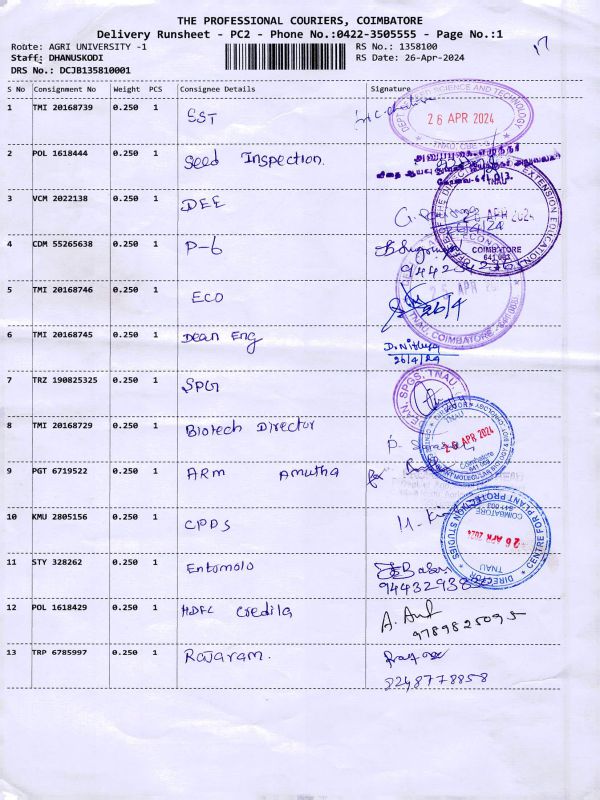 THE PROFESSIONAL COURIERS, COIMBATORE
Delivery Runsheet - PC2 - Phone No.:0422-3505555 - Page No.:1
Route: AGRI UNIVERSITY -1 RS No.: 1358100
Staff: DHANUSKODI RS Date: 26-Apr-2024
DRS No.: DCJB135810001
S No Consignment No Weight PCS Consignee Details Signature
1 TMI 20168739 0.250 1 SST
26 APR 2024
2 POL 1618444 0.250 1 Seed Inspection.
3 VCM 2022138 0.250 1 DEE
4 CDM 55265638 0.250 1 P-6
COIMBATORE
641 003
5 TMI 20168746 0.250 1 ECO 26/4
TNAU, COIMBATORE
6 TMI 20168745 0.250 1 Dean Eng
26/4/24
7 TRZ 190825325 0.250 1 SPG
DEAN, SPGS, TNAU
8 TMI 20168729 0.250 1 Biotech Director
26 APR 2024
9 PGT 6719522 0.250 1 ARM Amutha
10 KMU 2805156 0.250 1 CPPS
DIRECTOR CENTRE FOR PLANT PROTECTION STUDIES
COIMBATORE
641 003
26 APR 2024
TNAU
11 STY 328262 0.250 1 Entomolo
12 POL 1618429 0.250 1 HDFC Credila
9789825095
13 TRP 6785997 0.250 1 Rajaram.
8248778858